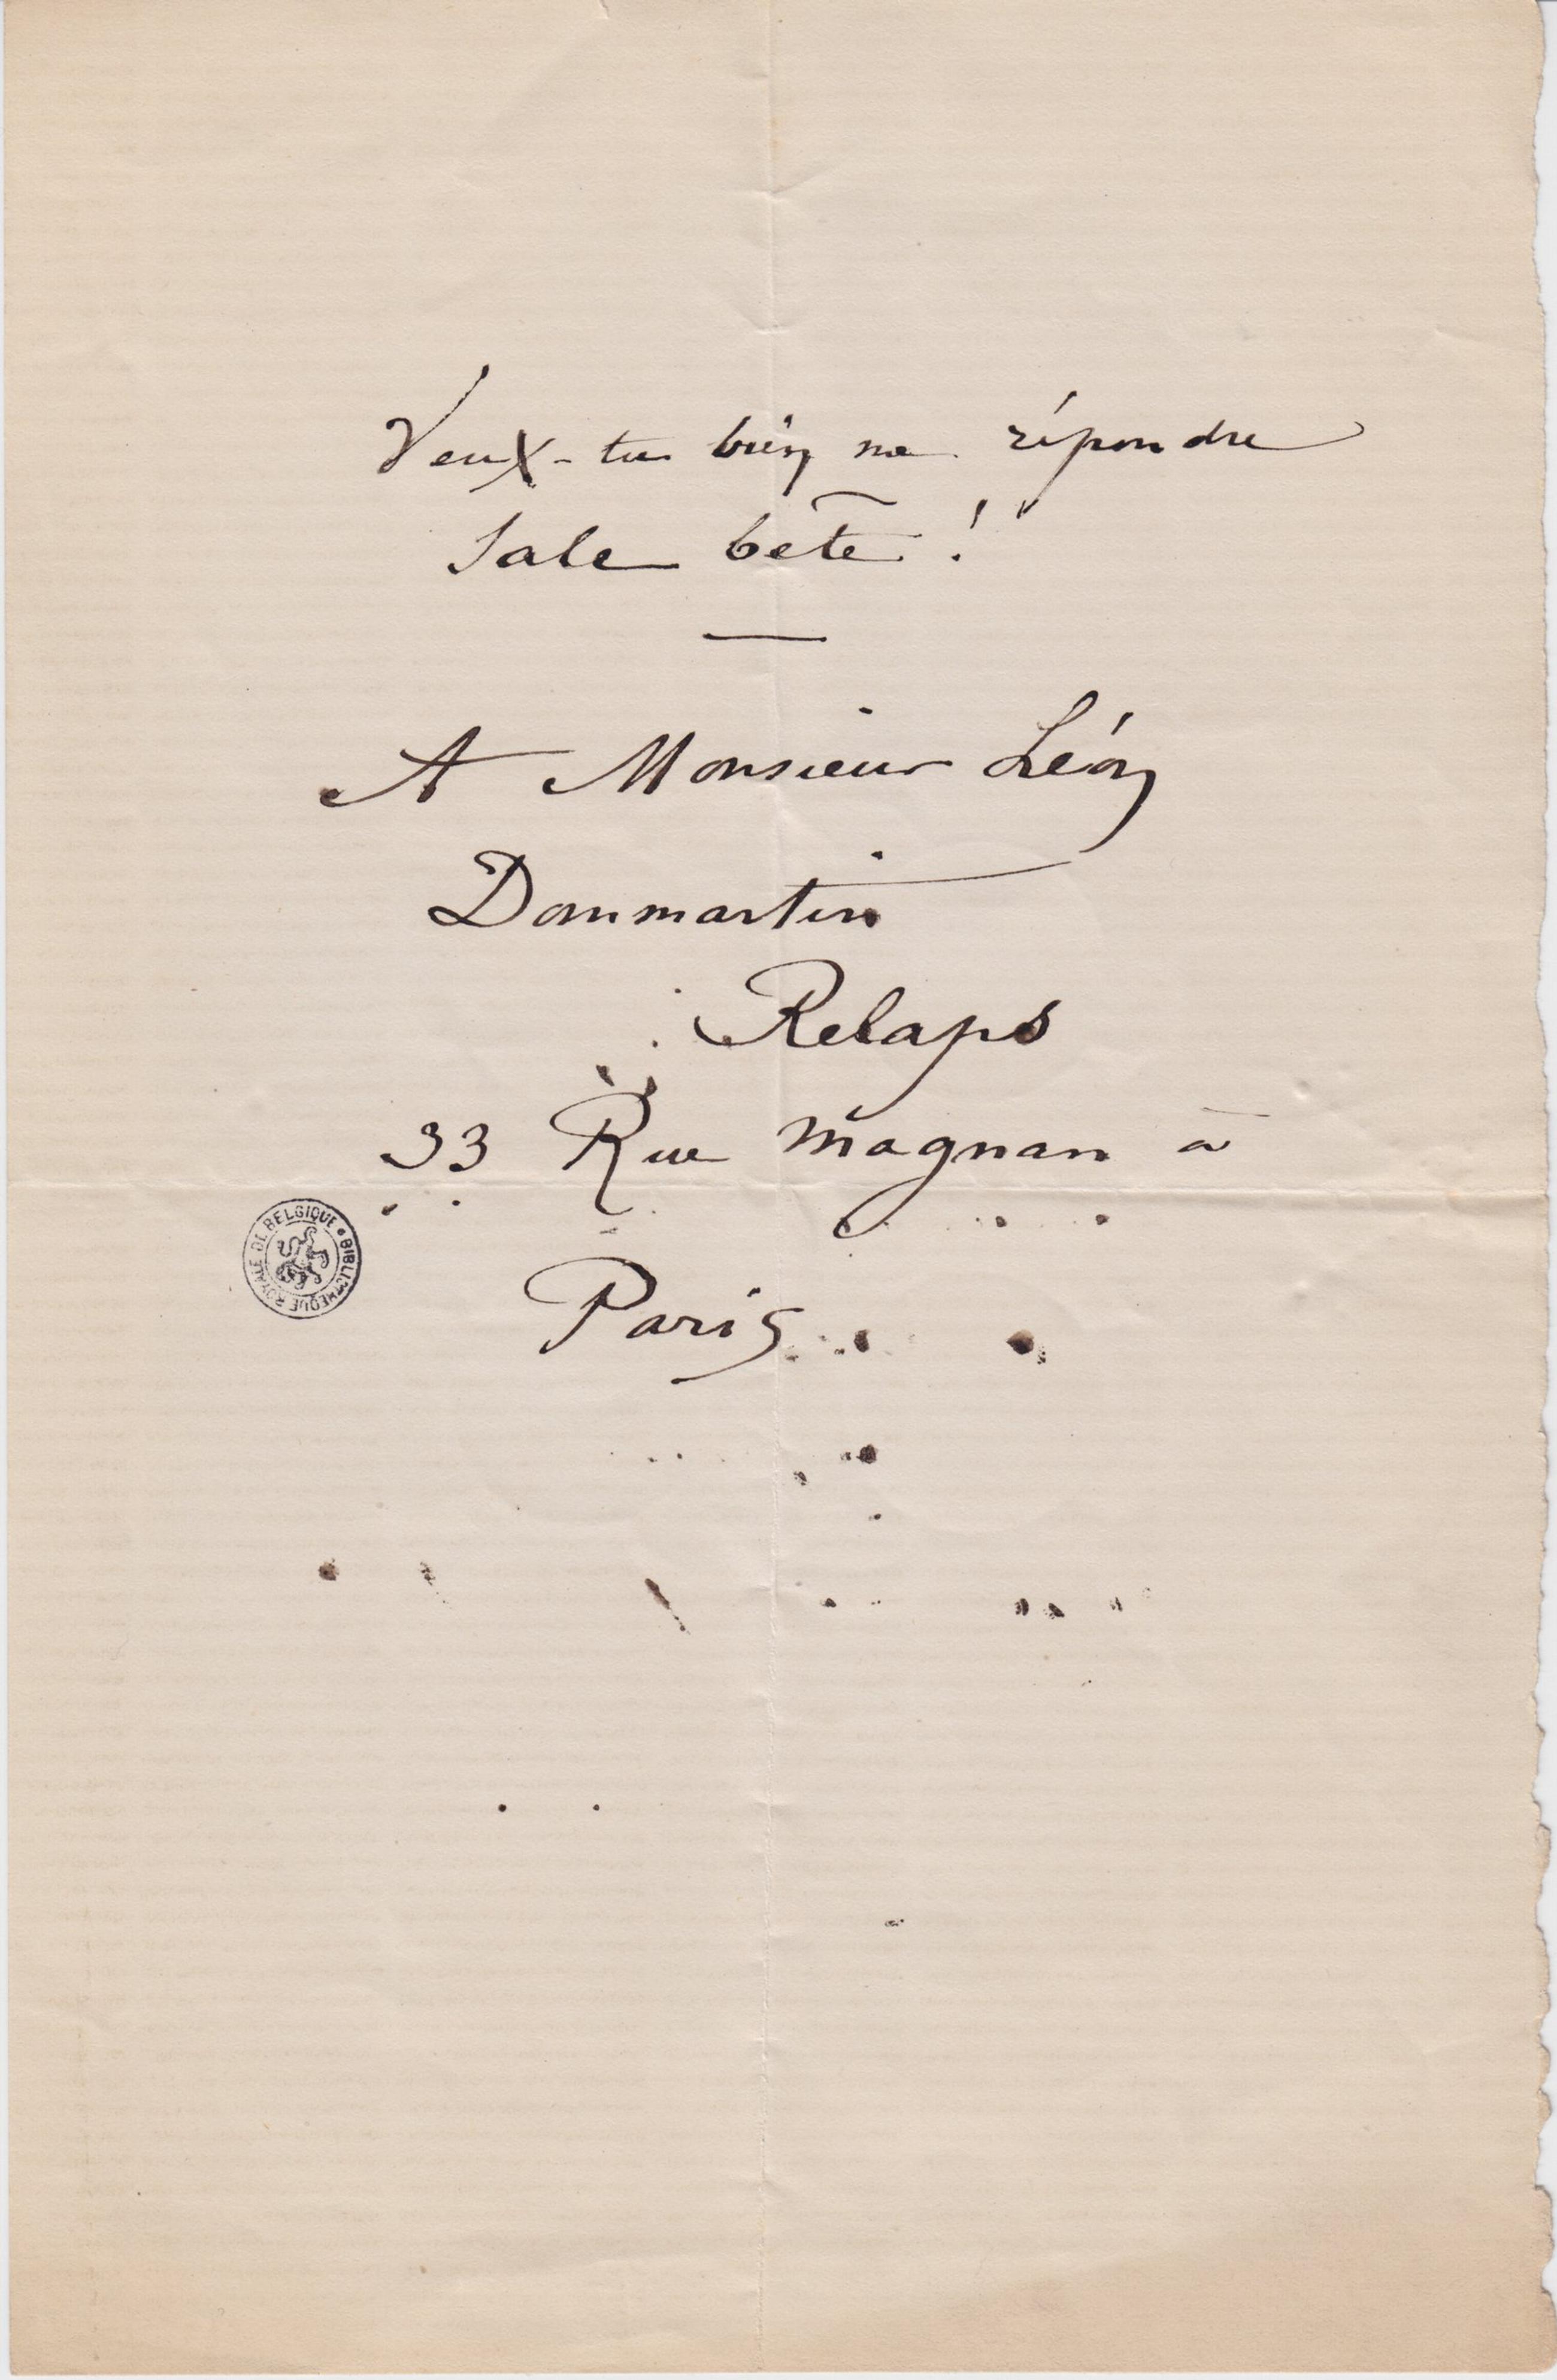 Veux-tu bien me répondre
Sale bête !
A Monsieur Léon
Dommartin
Relaps
33 Rue Magnan à
Paris
BIBLIOTHEQUE ROYALE DE BELGIQUE